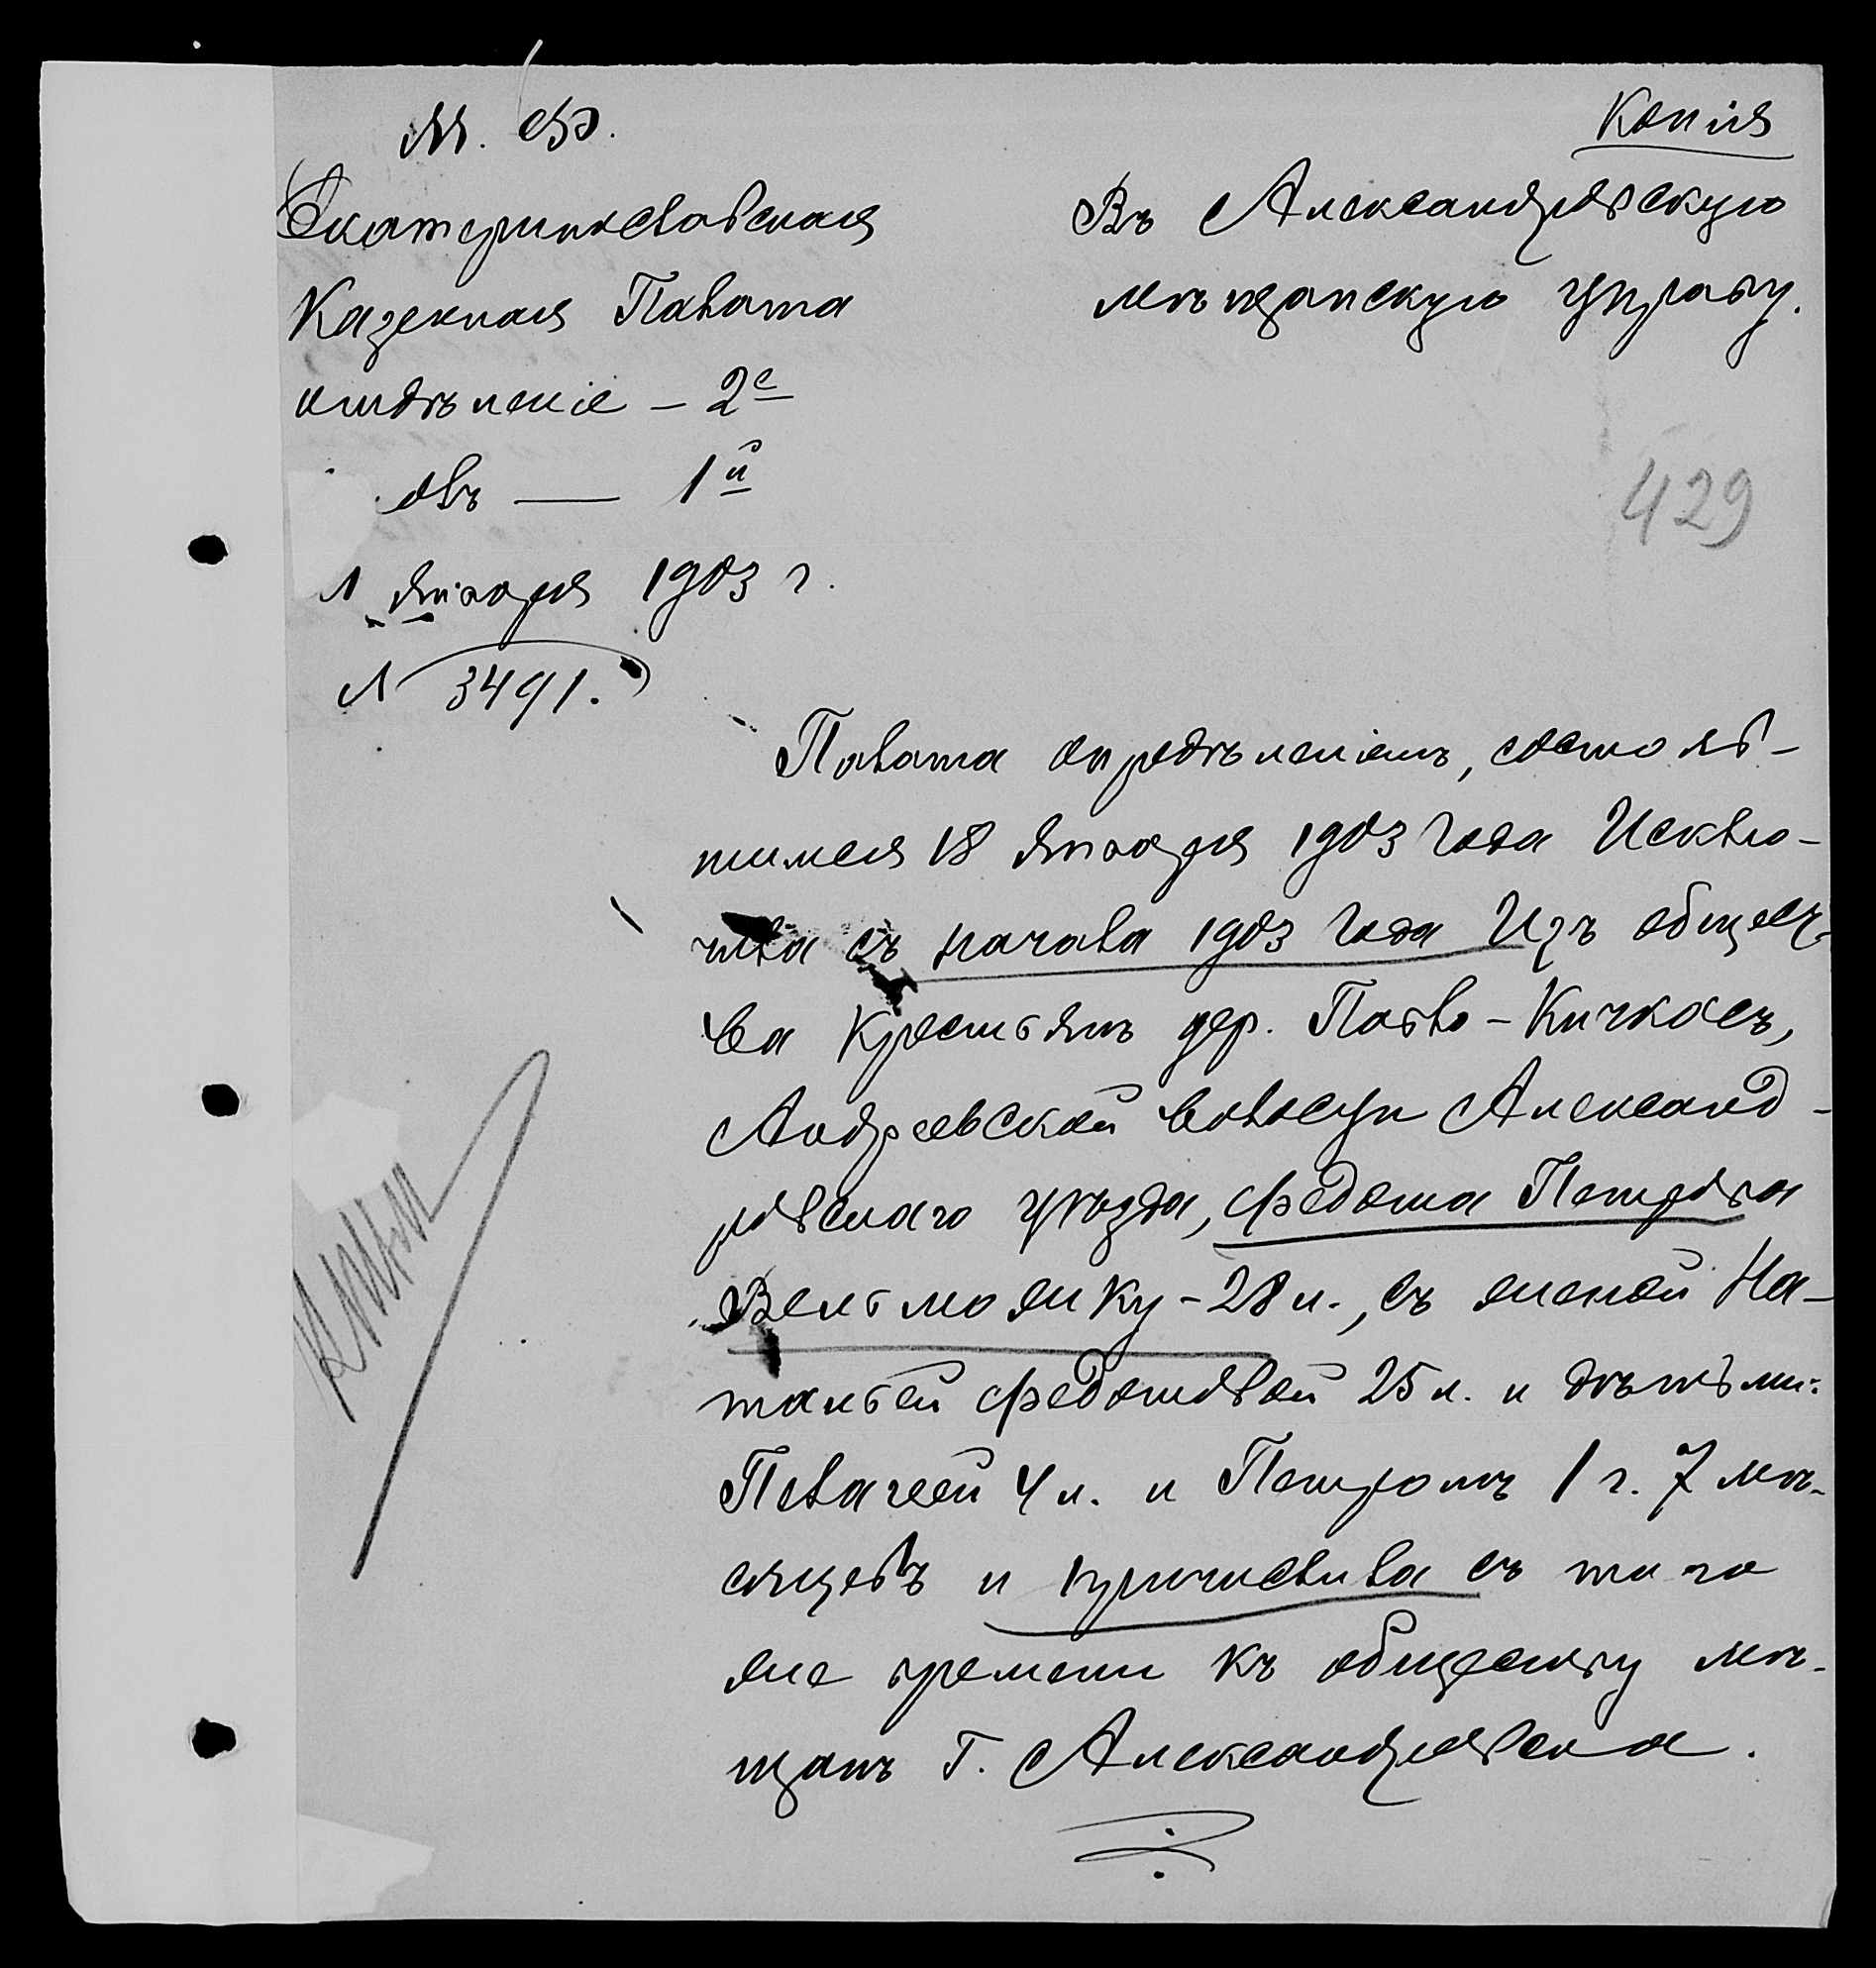 М. Ф.
Копія
Екатеринославская
Казенная Палата
отдѣленіе – 2е
Въ Александровскую
мѣщанскую управу.
столъ — 1й
января 1903 г.
№ 3491.
429
Палата опредѣленіемъ, состояв-
шимся 18 января 1903 года Исклю-
чила съ начала 1903 года Изъ общест-
ва крестьянъ дер. Павло-Кичкасъ,
Андреевской волости Александ-
ровскаго уѣзда, Федота Петрова
Вельможку – 28 л., съ женой На-
тальей Федотовой 25 л. и дѣтьми:
Пелагеей 4 л. и Петромъ 1 г. 7 мѣ-
сяцевъ и причислила съ того
же времени къ обществу мѣ-
щанъ г. Александровска.